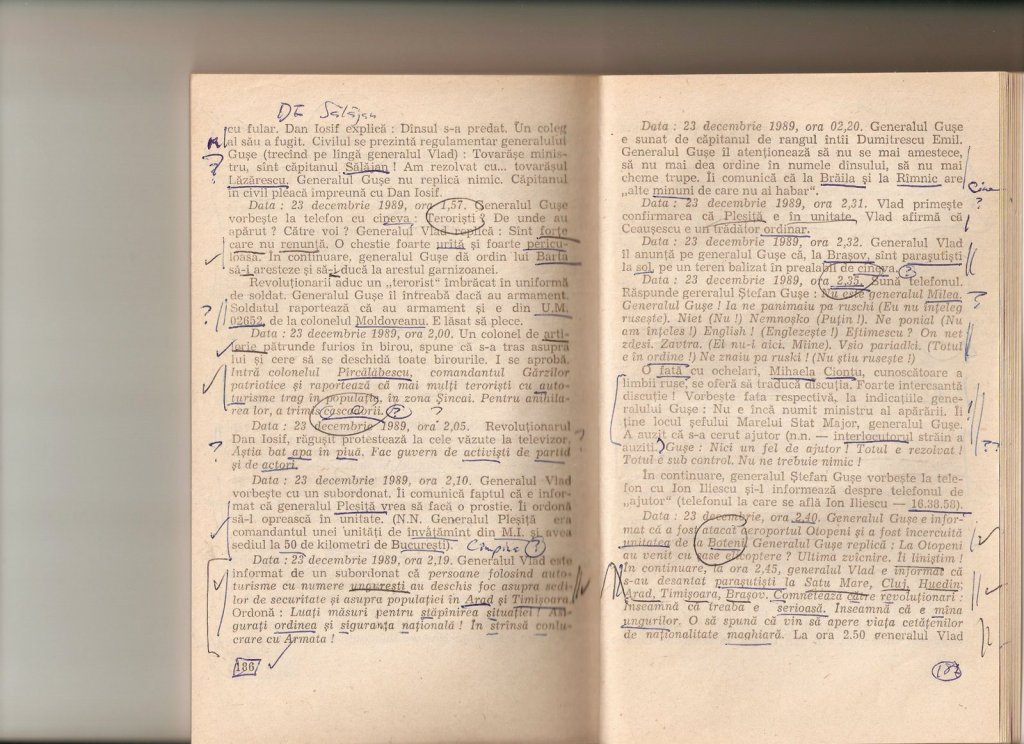 DE Sălăjan
cu fular. Dan Iosif explică : Dînsul s-a predat. Un coleg
al său a fugit. Civilul se prezintă regulamentar generalului
Gușe (trecind pe lîngă generalul Vlad) : Tovarășe minis-
tru, sînt căpitanul Sălăjan ! Am rezolvat cu... tovarășul
Lăzărescu. Generalul Gușe nu replică nimic. Căpitanul
în civil pleacă împreună cu Dan Iosif.
Data : 23 decembrie 1989, ora 1,57. Generalul Gușe
vorbește la telefon cu cineva : Teroriști ? De unde au
apărut ? Către voi ? Generalul Vlad replică : Sînt forțe
care nu renunță. O chestie foarte urîtă și foarte pericu-
loasă. În continuare, generalul Gușe dă ordin lui Barta
să-i aresteze și să-i ducă la arestul garnizoanei.
Revoluționarii aduc un „terorist" îmbrăcat în uniformă
de soldat. Generalul Gușe îl întreabă dacă au armament.
Soldatul raportează că au armament și e din U.M.
02652, de la colonelul Moldoveanu. E lăsat să plece.
Data : 23 decembrie 1989, ora 2,00. Un colonel de arti-
lerie pătrunde furios în birou, spune că s-a tras asupra
lui și cere să se deschidă toate birourile. I se aprobă.
Intră colonelul Pîrcălăbescu, comandantul Gărzilor
patriotice și raportează că mai mulți teroriști cu auto-
turisme trag în populație, în zona Șincai. Pentru anihila-
rea lor, a trimis cascadorii. ? ?
Data : 23 decembrie 1989, ora 2,05. Revoluționarul
Dan Iosif, răgușit protestează la cele văzute la televizor.
Aștia bat apa în piuă. Fac guvern de activiști de partid
și de actori.
Data : 23 decembrie 1989, ora 2,10. Generalul Vlad
vorbește cu un subordonat. Îi comunică faptul că e infor-
mat că generalul Pleșiță vrea să facă o prostie. Îi ordonă
să-l oprească în unitate. (N.N. Generalul Pleșiță era
comandantul unei unități de învățămînt din M.I. și avea
sediul la 50 de kilometri de București). Cîmpina ?
Data : 23 decembrie 1989, ora 2,19. Generalul Vlad este
informat de un subordonat că persoane folosind auto-
turisme cu numere ungurești au deschis foc asupra sedi-
lor de securitate și asupra populației în Arad și Timișoara.
Ordonă : Luați măsuri pentru stăpînirea situației ! Asi-
gurați ordinea și siguranța națională ! În strînsă conlu-
crare cu Armata !
186
Data : 23 decembrie 1989, ora 02,20. Generalul Gușe
e sunat de căpitanul de rangul întîi Dumitrescu Emil.
Generalul Gușe îl atenționează să nu se mai amestece,
să nu mai dea ordine în numele dînsului, să nu mai
cheme trupe. Îi comunică că la Brăila și la Rîmnic are
„alte minuni de care nu ai habar".
Cine ?
Data : 23 decembrie 1989, ora 2,31. Vlad primește
confirmarea că Pleșiță e în unitate. Vlad afirmă că
Ceaușescu e un trădător ordinar.
Data : 23 decembrie 1989, ora 2,32. Generalul Vlad
îl anunță pe generalul Gușe că, la Brașov, sînt parașutiști
la sol, pe un teren balizat în prealabil de cineva. ?
Data : 23 decembrie 1989, ora 2,35. Sună telefonul.
Răspunde gereralul Ștefan Gușe : Nu este generalul Milea.
Generalul Gușe ! Ia ne panimaiu pa ruschi (Eu nu înțeleg
rusește). Niet (Nu !) Nemnoșko (Puțin !). Ne ponial (Nu
am înțeles !) English ! (Englezește !) Eftimescu ? On net
zdesi. Zavtra. (El nu-i aici. Mîine). Vsio pariadki. (Totul
e în ordine !) Ne znaiu pa ruski ! (Nu știu rusește !)
O fată cu ochelari, Mihaela Cionțu, cunoscătoare a
limbii ruse, se oferă să traducă discuția. Foarte interesantă
discuție ! Vorbește fata respectivă, la indicațiile gene-
ralului Gușe : Nu e încă numit ministru al apărării. Îi
ține locul șefului Marelui Stat Major, generalul Gușe.
A auzit că s-a cerut ajutor (n.n. — interlocutorul străin a
auzit). Gușe : Nici un fel de ajutor ! Totul e rezolvat !
Totul e sub control. Nu ne trebuie nimic !
În continuare, generalul Ștefan Gușe vorbește la tele-
fon cu Ion Iliescu și-l informează despre telefonul de
„ajutor" (telefonul la care se află Ion Iliescu — 16.38.58).
Data : 23 decembrie, ora 2,40. Generalul Gușe e infor-
mat că a fost atacat aeroportul Otopeni și a fost încercuită
unitatea de la Boteni. Generalul Gușe replică : La Otopeni
au venit cu șase elicoptere ? Ultima zvîcnire. Îi liniștim !
În continuare, la ora 2,45, generalul Vlad e informat că
s-au desantat parașutiști la Satu Mare, Cluj, Huedin,
Arad, Timișoara, Brașov. Comnetează către revoluționari :
Înseamnă că treaba e serioasă. Înseamnă că e mîna
ungurilor. O să spună că vin să apere viața cetățenilor
de naționalitate maghiară. La ora 2.50 generalul Vlad
187